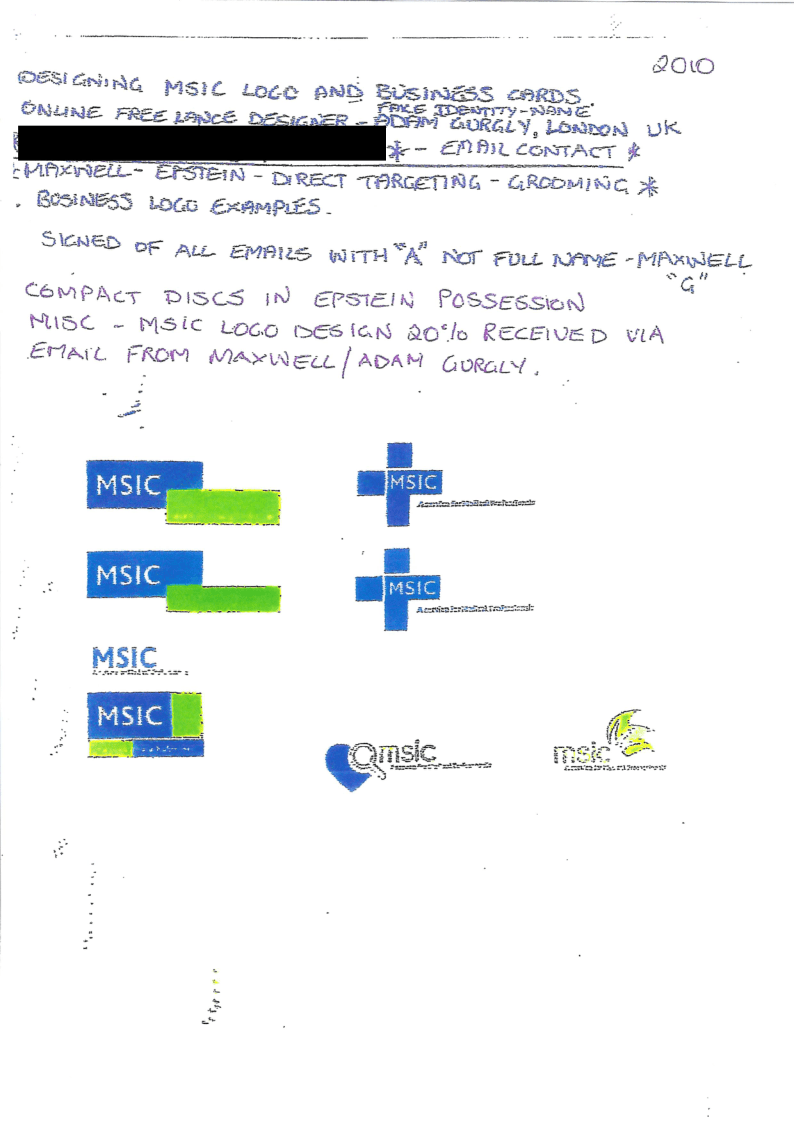 2010
DESIGNING MSIC LOGO AND BUSINESS CARDS.
FAKE IDENTITY-NAME
ONLINE FREE LANCE DESIGNER - ADAM GURGLY, LONDON UK
* - EMAIL CONTACT *
MAXWELL - EPSTEIN - DIRECT TARGETING - GROOMING *
. BUSINESS LOGO EXAMPLES.
SIGNED OF ALL EMAILS WITH "A" NOT FULL NAME - MAXWELL
"G"
COMPACT DISCS IN EPSTEIN POSSESSION
MISC - MSIC LOGO DESIGN 20% RECEIVED VIA
EMAIL FROM MAXWELL/ADAM GURGLY.
MSIC
MSIC
MSIC
MSIC
MSIC
MSIC
msic
msic